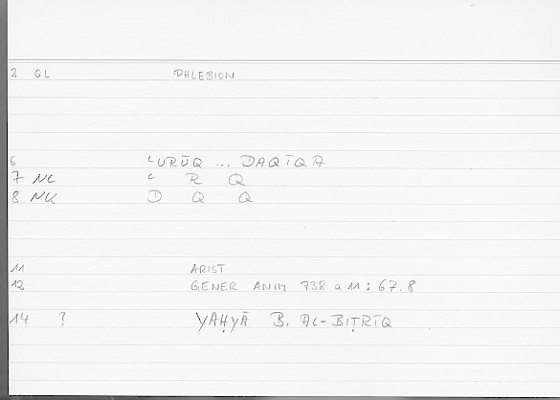 2 QL PHLEBION
6 ʿURŪQ ... DAQĪQA
7 NL ʿ R Q
8 NK D Q Q
11 ARIST
12 GENER ANIM 738 a 11 : 67.8
14 ? YAḤYĀ B. AL-BIṬRĪQ